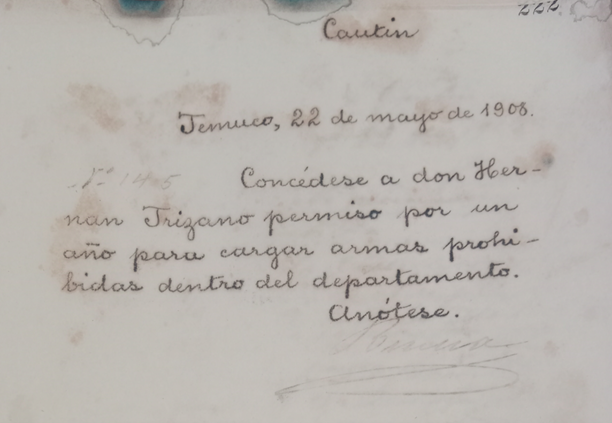 222
Cautin
Temuco, 22 de mayo de 1908.
Nº 145 Concédese a don Her-
nan Trizano permiso por un
año para cargar armas prohi-
bidas dentro del departamento.
Anótese.